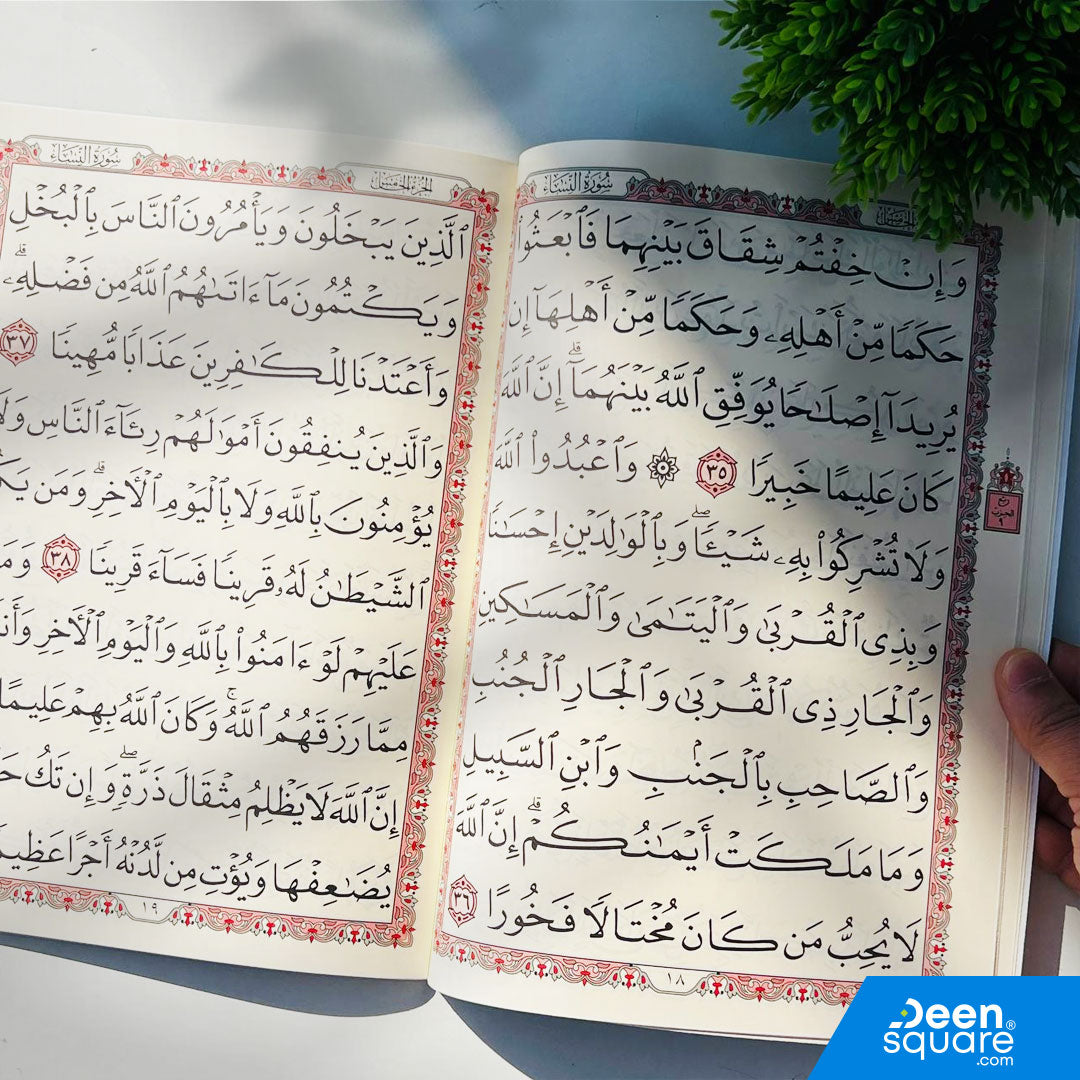 سُورَةُ النِّسَاءِ
وَإِنْ خِفْتُمْ شِقَاقَ بَيْنِهِمَا فَٱبْعَثُوا۟
حَكَمًا مِّنْ أَهْلِهِۦ وَحَكَمًا مِّنْ أَهْلِهَآ إِن
يُرِيدَآ إِصْلَٰحًا يُوَفِّقِ ٱللَّهُ بَيْنَهُمَآ ۗ إِنَّ ٱللَّهَ
كَانَ عَلِيمًا خَبِيرًا ٣٥ ۞ وَٱعْبُدُوا۟ ٱللَّهَ
وَلَا تُشْرِكُوا۟ بِهِۦ شَيْـًٔا ۖ وَبِٱلْوَٰلِدَيْنِ إِحْسَٰنًا
وَبِذِى ٱلْقُرْبَىٰ وَٱلْيَتَٰمَىٰ وَٱلْمَسَٰكِينِ
وَٱلْجَارِ ذِى ٱلْقُرْبَىٰ وَٱلْجَارِ ٱلْجُنُبِ
وَٱلصَّاحِبِ بِٱلْجَنۢبِ وَٱبْنِ ٱلسَّبِيلِ
وَمَا مَلَكَتْ أَيْمَٰنُكُمْ ۗ إِنَّ ٱللَّهَ
لَا يُحِبُّ مَن كَانَ مُخْتَالًا فَخُورًا ٣٦
١٨
الجزء الخامس
سُورَةُ النِّسَاءِ
ٱلَّذِينَ يَبْخَلُونَ وَيَأْمُرُونَ ٱلنَّاسَ بِٱلْبُخْلِ
وَيَكْتُمُونَ مَآ ءَاتَىٰهُمُ ٱللَّهُ مِن فَضْلِهِۦ ۗ
وَأَعْتَدْنَا لِلْكَٰفِرِينَ عَذَابًا مُّهِينًا ٣٧
وَٱلَّذِينَ يُنفِقُونَ أَمْوَٰلَهُمْ رِئَآءَ ٱلنَّاسِ وَلَا
يُؤْمِنُونَ بِٱللَّهِ وَلَا بِٱلْيَوْمِ ٱلْءَاخِرِ ۗ وَمَن
ٱلشَّيْطَٰنُ لَهُۥ قَرِينًا فَسَآءَ قَرِينًا ٣٨
عَلَيْهِمْ لَوْ ءَامَنُوا۟ بِٱللَّهِ وَٱلْيَوْمِ ٱلْءَاخِرِ
مِمَّا رَزَقَهُمُ ٱللَّهُ ۚ وَكَانَ ٱللَّهُ بِهِمْ عَلِيمًا
إِنَّ ٱللَّهَ لَا يَظْلِمُ مِثْقَالَ ذَرَّةٍ ۖ وَإِن تَكُ
يُضَٰعِفْهَا وَيُؤْتِ مِن لَّدُنْهُ أَجْرًا
١٩
Deen
square®
.com